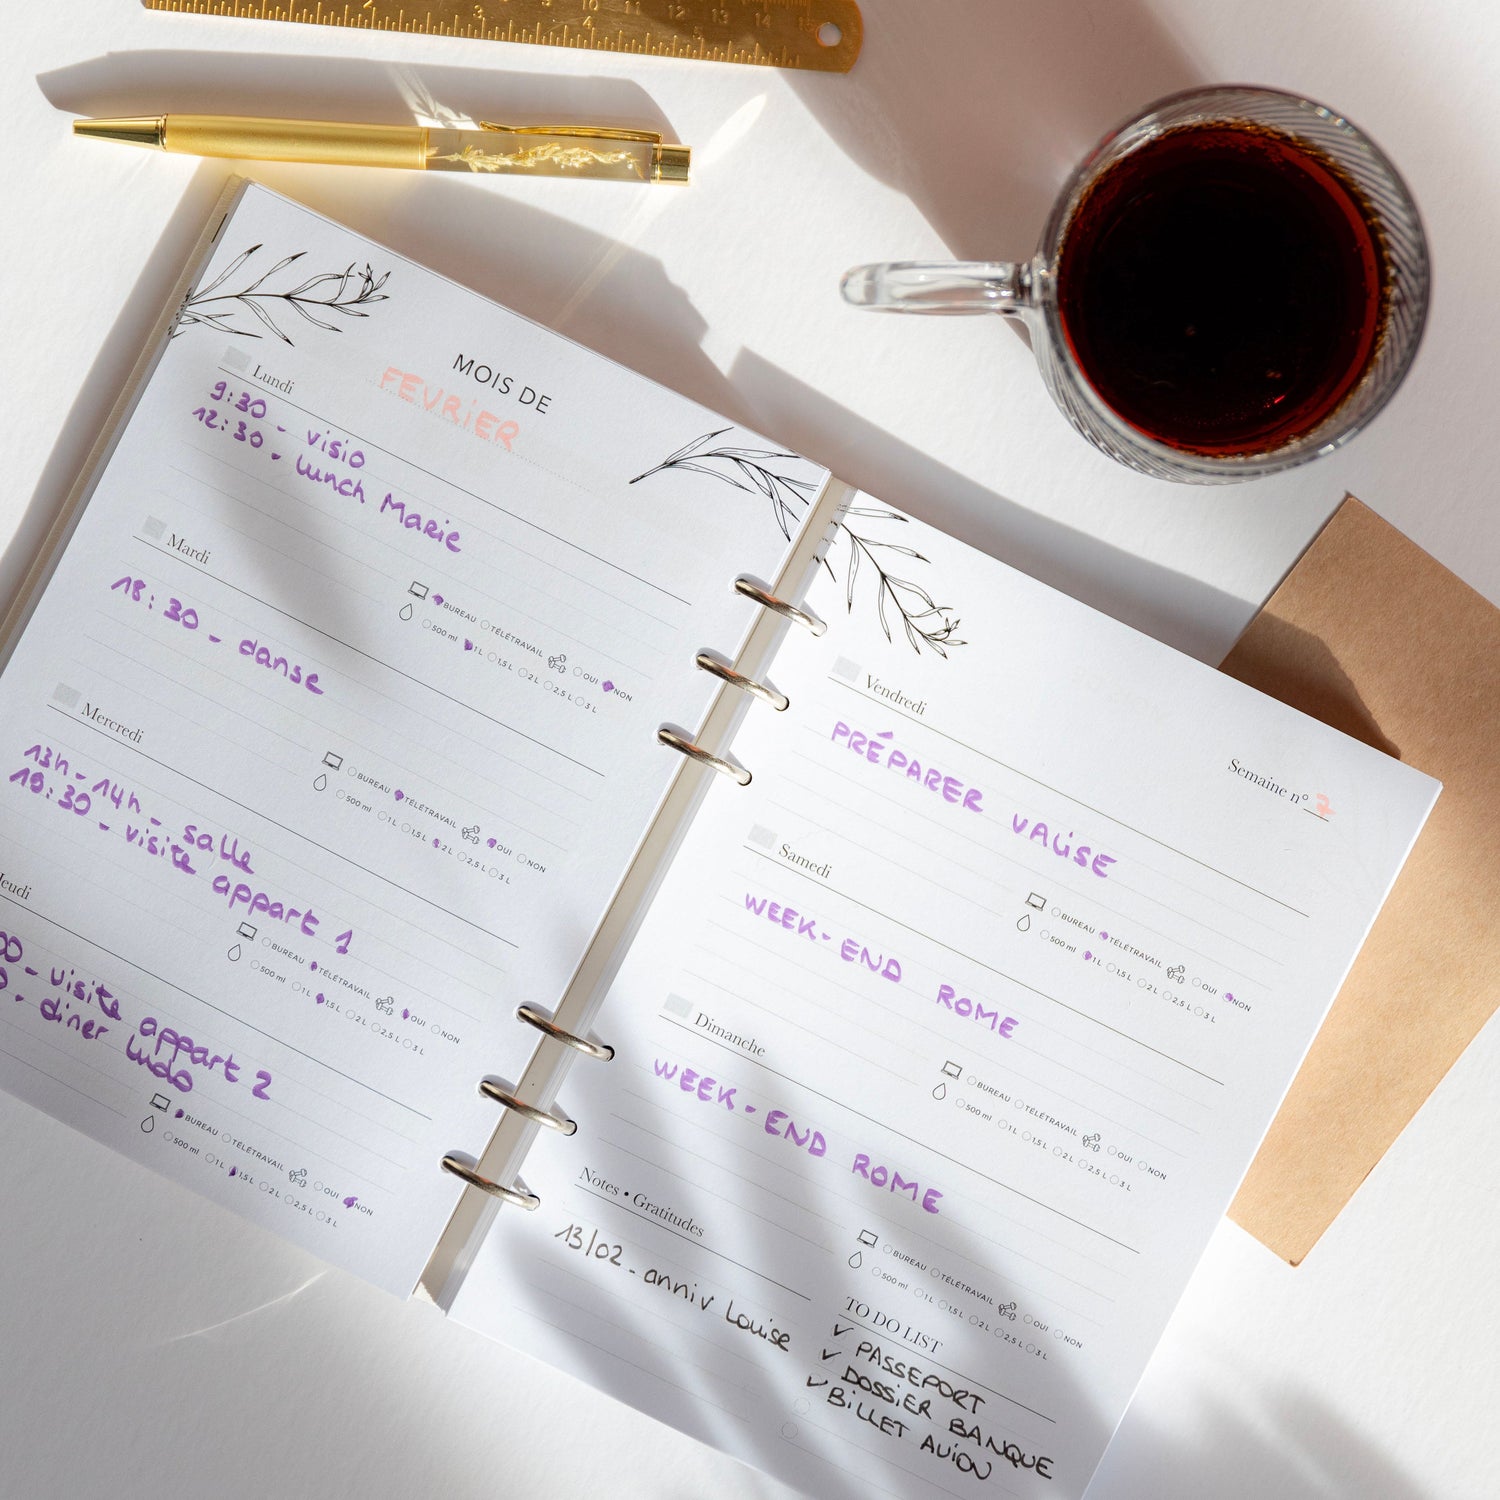 2 3 8 9 10 11 12 13 14
MOIS DE
FEVRiER
Lundi
9:30 - visio
12:30 - lunch Marie
BUREAU TÉLÉTRAVAIL OUI NON
500 ml 1 L 1,5 L 2 L 2,5 L 3 L
Mardi
18:30 - danse
BUREAU TÉLÉTRAVAIL OUI NON
500 ml 1 L 1,5 L 2 L 2,5 L 3 L
Mercredi
13h - 14h - salle
19:30 - visite appart 1
BUREAU TÉLÉTRAVAIL OUI NON
500 ml 1 L 1,5 L 2 L 2,5 L 3 L
Jeudi
- visite appart 2
- diner Ludo
BUREAU TÉLÉTRAVAIL OUI NON
500 ml 1 L 1,5 L 2 L 2,5 L 3 L
Semaine n° 7
Vendredi
PRÉPARER VALiSE
BUREAU TÉLÉTRAVAIL OUI NON
500 ml 1 L 1,5 L 2 L 2,5 L 3 L
Samedi
WEEK-END ROME
BUREAU TÉLÉTRAVAIL OUI NON
500 ml 1 L 1,5 L 2 L 2,5 L 3 L
Dimanche
WEEK-END ROME
BUREAU TÉLÉTRAVAIL OUI NON
500 ml 1 L 1,5 L 2 L 2,5 L 3 L
Notes • Gratitudes
13/02 - anniv Louise
TO DO LIST
✓ PASSEPORT
✓ DOSSiER BANQUE
✓ BiLLET AViON